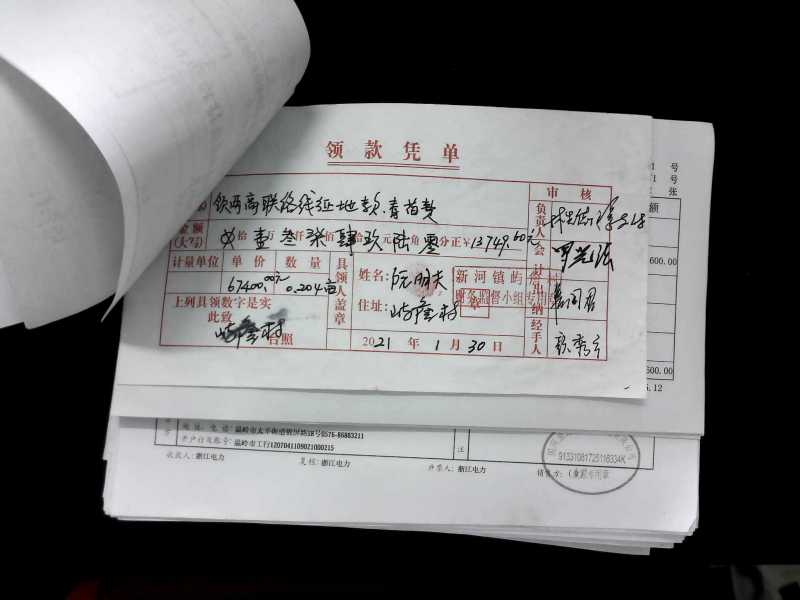 领款凭单
铁西高联络线征地款.青苗费
审核
金额
(大写)
拾 壹万 叁仟 柒佰 肆拾 玖元 陆角 零分正 ¥13749.60元
负责人
会计
计量单位 单价 数量
67400.00元 0.204亩
具领人盖章
姓名: 阮明夫
住址: 屿 村
新河镇屿
财务监督小组专用章
出纳
上列具领数字是实
此致
屿 村
台照
2021年1月30日
经手人
号
号
张
额
600.00
600.00
.12
地址、电话: 温岭市太平街道 屏路38号0576-86883211
开户行及账号: 温岭市工行1207041109021000215
收款人: 浙江电力
复核: 浙江电力
开票人: 浙江电力
销售方: (章)
91331081725116334K
发票专用章